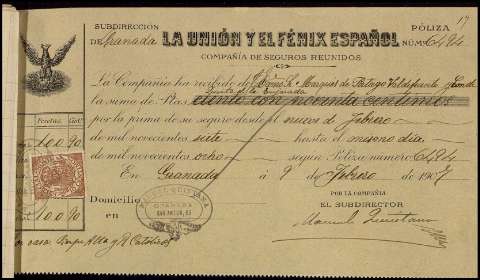 17
SUBDIRECCIÓN PÓLIZA
DE Granada LA UNIÓN Y EL FÉNIX ESPAÑOL NÚM. 6484
COMPAÑÍA DE SEGUROS REUNIDOS
La Compañía ha recibido de Marques de Portago Valdefuente
la suma de Ptas. ciento con noventa centimos
por la prima de su seguro desde el nueve de febrero
de mil novecientos siete hasta el mismo día
de mil novecientos ocho según Póliza número 6484
En Granada á 9 de Febrero de 1907
POR LA COMPAÑÍA
EL SUBDIRECTOR
Manuel Quintana
Domicilio
en
MANUEL QUINTANA
GRANADA
Pesetas Cts.
100 90
100 90
casa Angulo Alta y R Catolicos